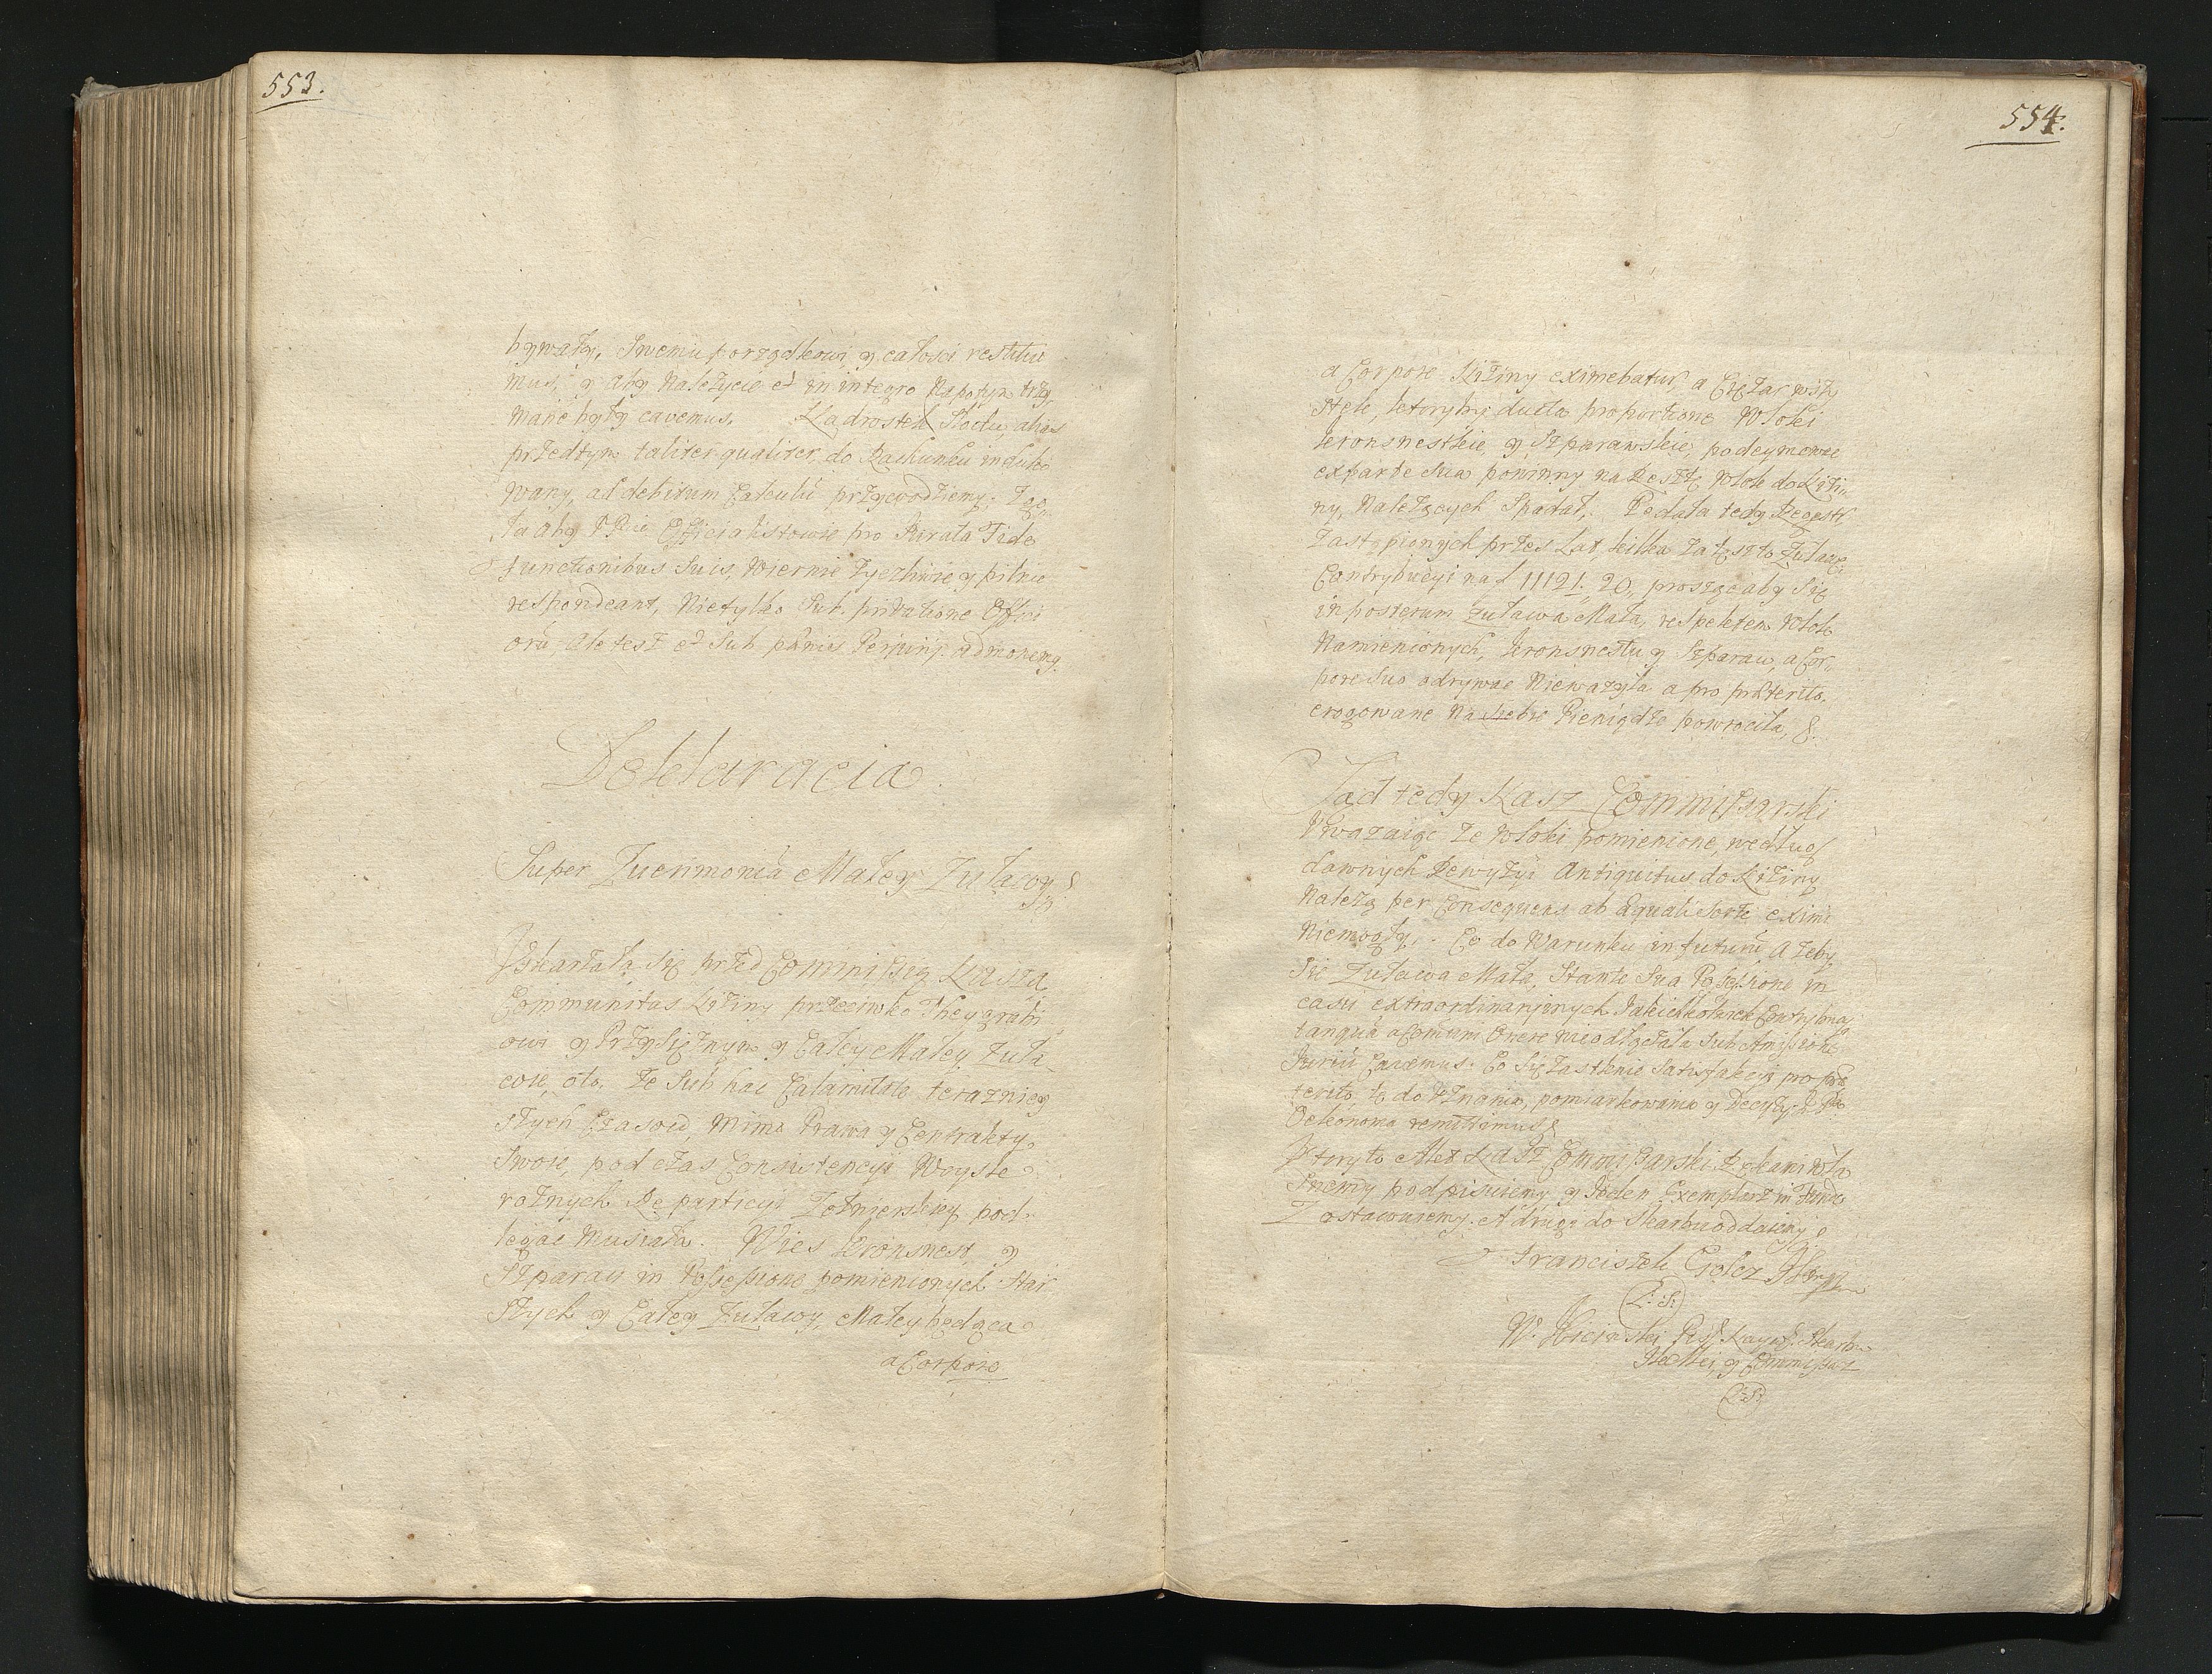 553.
bywały, Swemu porządkowi, y całosci restitui
mus, y aby Należycie et in integro Napotym trzy
mane były cavemus. Nadrostek Słodu, alias
przedtym taliter qualiter, do Rachunku induko
wany, ad debitum Calculu przywodziemy,
ta aby Officialistowie pro Iurata Fide
functionibus Suis, wiernie życzliwie y pilnie
respondeant, Nietylko Sub privatione Offici
oru ale też et Sub pænis Perjurij admonemg.
Deklaracia.
Super Zuenmonia Małey Zuławy
Iskarżała się przed Commissią Naszą
Communitas Liżiny przeciwko Theygrabi
owi y Przysiężnym y Całey Małey Zuła
wie, oto, że Sub hac Calamitate terazniey
szych Czasow, Mimo Prawa y Contrakty
Swoie, pod czas Consistencyi Woyska
rożnych Re particyi Żołnierskiey pod
legać Musiała. Wies Kronsnest, y
Szparau in Possessione pomienionych Star
szych y Całey Żuławy, Małey będąca
a Corpore
554.
a Corpore Liżiny eximebatur, a Ciężar wszy
stek, ktoryby ducta proportione Włoki
Kronsnestkie, y Szparawskie, podeymowac
exparte Sua powinny na Resztę Włok do Liżi
ny, Należących Spadał. Podała tedy Regestr
Zastąpionych przez Lat, kilka zatęsz to Zuławę
Contrybucyi na f 11121. 20,, prosząc aby Się
inposterum Zuława Mała, respektem Włok
Namienionych, Kronsnestu y Szparau, a Cor
pore Suo odrywac Nieważyła a pro præterito,
erogowane Na Siebie Pieniądze powrociła, &.
Sąd tedy Nasz Commissarski
Uwazaiąc że Włoki pomienione, według
dawnych Rewyzyi Antiquitus do Liżiny
Należą per Consequens ab æquali Sorte eximi
Niemogły. Co do Warunku in futurũ, Ażeby
Się Zuława Mała, Stante Sua Possessione in
casu extraordinaryinych Jakichkolwiek Contrybucyi
tanquã a Comuni Onere nie odłączała Sub Amissione
Juriũ Cavemus. Co Się zas tknie Satisfakcyi pro præ
terito, to do Uznania, pomiarkowania y Decyzyi
Oekonoma remittimus
Ktory to Akt Nasz Commissarski Rękami wła
snemi podpisuiemy, y Jeden Exemplarz in Fundo
Zostawuiemy. A drugi do Skarbu oddaiemy
Franciszek Golcz
L: S:
W. Kicinski Pis.
y Commissarz
L: S: